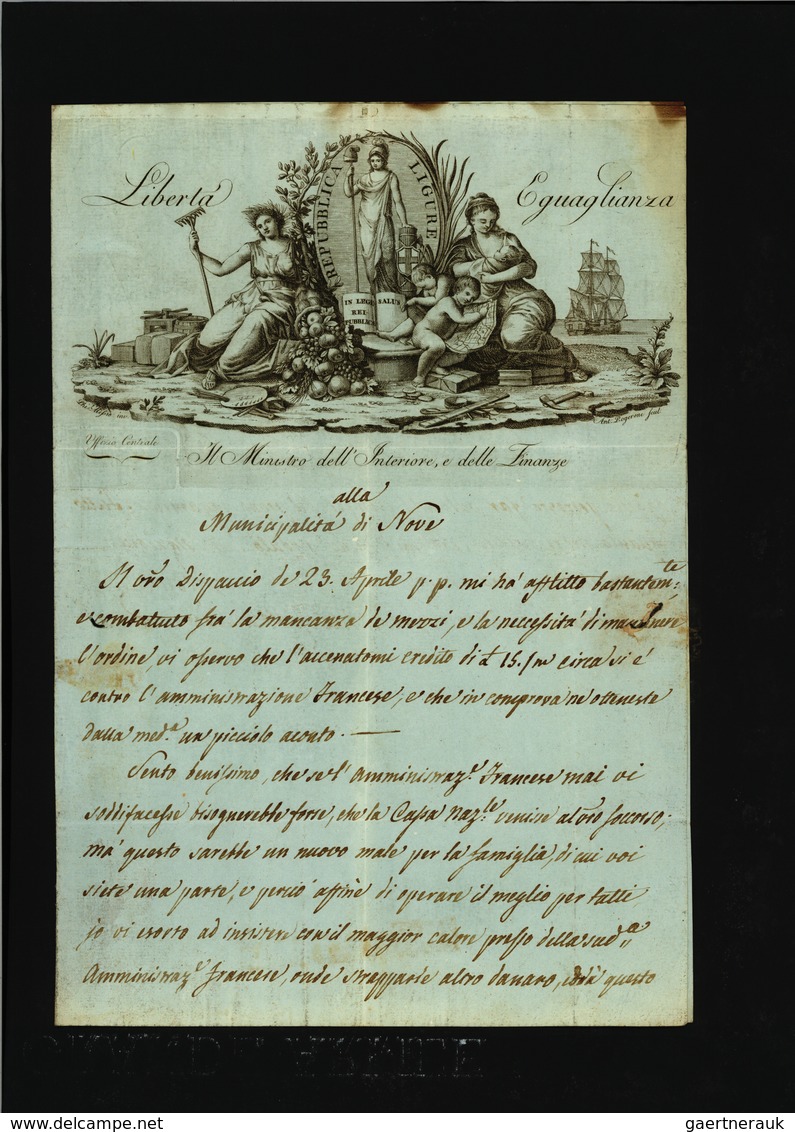 Libertà
REPUBBLICA LIGURE
Eguaglianza
IN LEGE SALUS
REI
PUBBLICÆ
inv.
Ant. sculp.
Uffizio Centrale
Il Ministro dell'Interiore, e delle Finanze
alla
Municipalità di Nove
Il vro Dispaccio de 23. Aprile p.p. mi hà afflitto bastantem.te
e combatuto frà la mancanza de mezzi, e la neccessità di mantenere
l'ordine vi osservo che l'accenatomi credito di £ 15./m circa si è
contro l'amministrazione Francese, e che in comprova ne otteneste
dalla med.a un picciolo aconto. —
Sento benissimo, che se l'Amministraz.e Francese mai vi
soddifacesse bisognerebbe forse, che la Cassa Naz.le venisse al vro soccorso;
mà questo sarebbe un nuovo male per la famiglia, di cui voi
siete una parte, e perciò affine di operare il meglio per tutti
io vi esorto ad insistere con il maggior calore presso della sud.a
Amministraz.e Francese, onde strapparle altro danaro, questo
delcampe.net
gaertnerauk